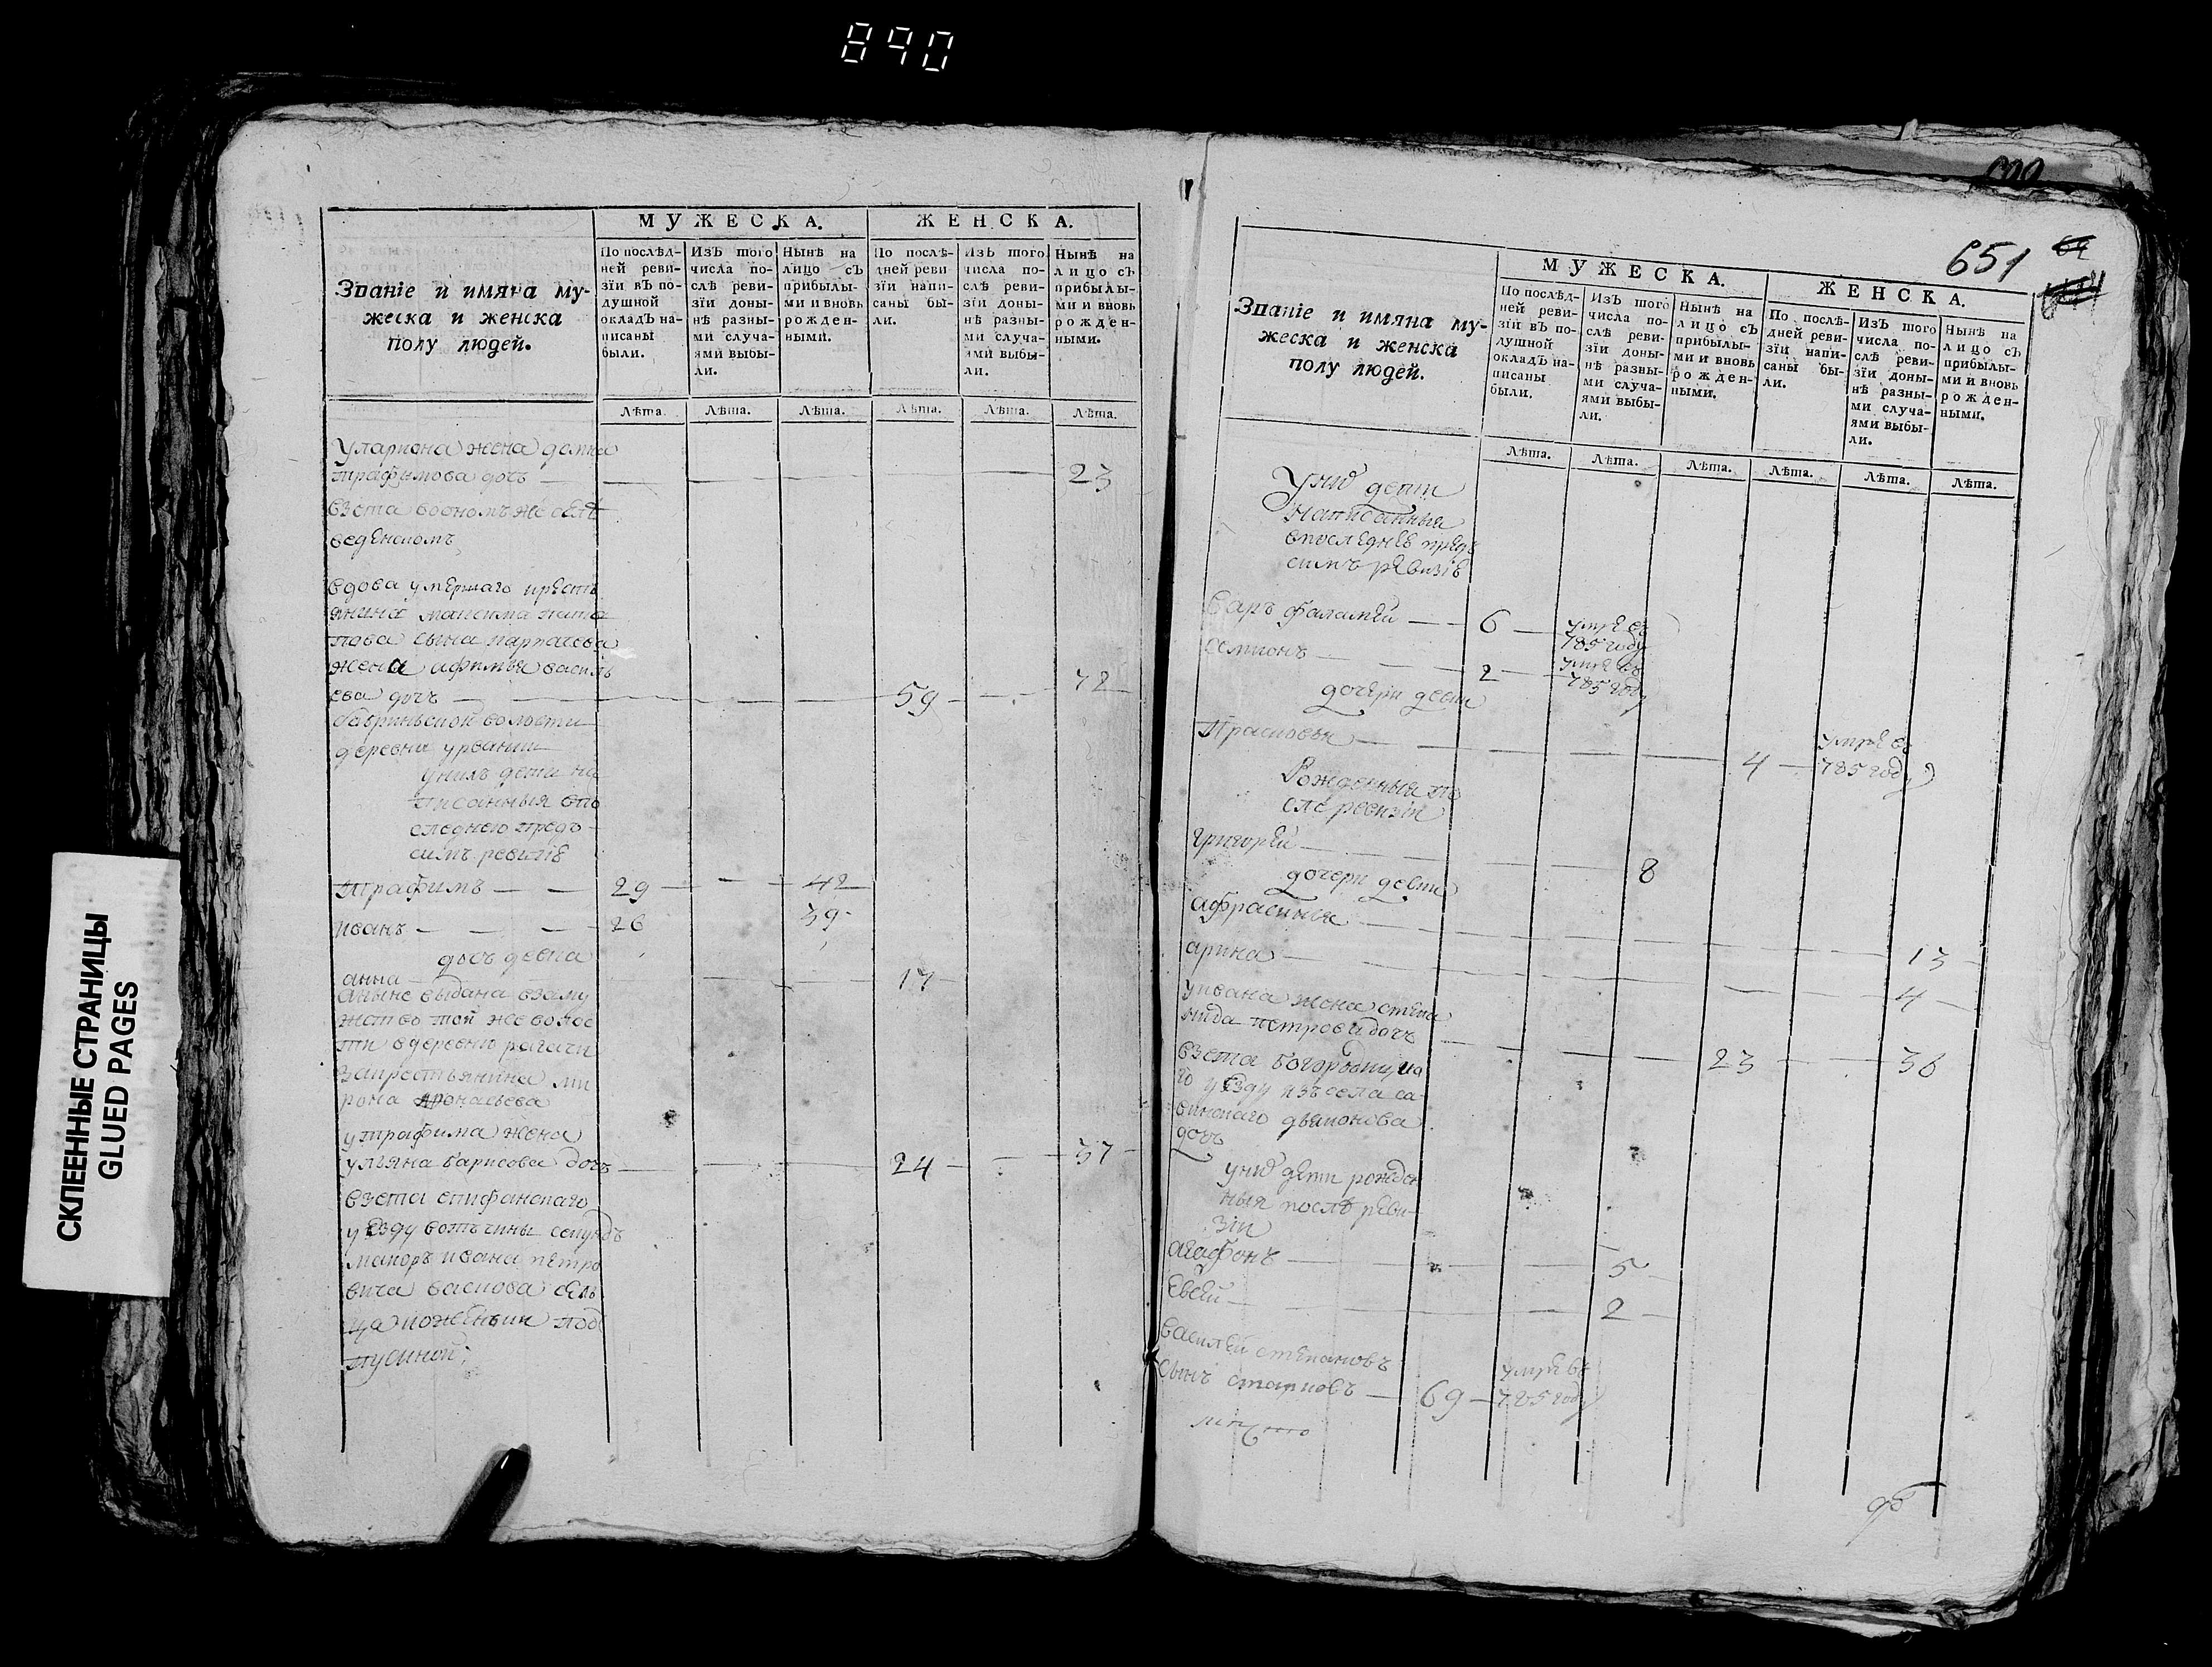 890
СКЛЕЕННЫЕ СТРАНИЦЫ
GLUED PAGES
Званіе и имяна му-
жеска и женска
полу людей.
МУЖЕСКА.
ЖЕНСКА.
По послѣд-
ней реви-
зіи въ по-
душной
окладъ на-
писаны
были.
Изъ того
числа по-
слѣ реви-
зіи доны-
нѣ разны-
ми случа-
ями выбы-
ли.
Нынѣ на
лицо съ
прибылы-
ми и вновь
рожден-
ными.
По послѣ-
дней реви-
зіи напи-
саны бы-
ли.
Изъ того
числа по-
слѣ реви-
зіи доны-
нѣ разны-
ми случа-
ями выбы-
ли.
Нынѣ на
лицо съ
прибылы-
ми и вновь
рожден-
ными.
Лѣта. Лѣта. Лѣта. Лѣта. Лѣта. Лѣта.
Улариона жена
трафимова дочь 23
взета воономъ же селѣ
веденскомъ
вдова умершаго кресть
янина максима
пова сына
жена афимья василь
ева дочъ 59 72
волости
деревни урванки
унихъ дети на
писанныя впо
следнею предъ
симъ ревизiе
трафимъ 29 42
иванъ 26 39
дочь девка
анна 17
аныне выдана взаму
жство той же волос
ти вдеревню рагачи
закрестьянина ми
рона афонасьева
утрафима жена
ульяна барисова дочь 24 37
взета епифанскаго
уезду вотъчины секундъ
маиоръ ивана петро
вича васкова сель
ца
651
Званіе и имяна му-
жеска и женска
полу людей.
МУЖЕСКА.
ЖЕНСКА.
По послѣд-
ней реви-
зіи въ по-
душной
окладъ на-
писаны
были.
Изъ того
числа по-
слѣ реви-
зіи доны-
нѣ разны-
ми случа-
ями выбы-
ли.
Нынѣ на
лицо съ
прибылы-
ми и вновь
рожден-
ными.
По послѣ-
дней реви-
зіи напи-
саны бы-
ли.
Изъ того
числа по-
слѣ реви-
зіи доны-
нѣ разны-
ми случа-
ями выбы-
ли.
Нынѣ на
лицо съ
прибылы-
ми и вновь
рожден-
ными.
Лѣта. Лѣта. Лѣта. Лѣта. Лѣта. Лѣта.
Унихъ дети
написанныя
впоследнее предъ
симъ ревизiе
варъфаламей 6 умре въ
785 году
семионъ 2 умре въ
785 году
дочери девки
Прасковья 4 умре въ
785 году
Рожденныя по
сле ревизiи
григорей 8
дочери девки
афрасинья 13
арина 4
уивана жена степа
нида петрова дочь 23 36
взета богородицка
го уезду изъ села са
винскаго дьяконова
дочь
унихъ дети рожден
ныя послѣ реви-
зiи
агафонъ 5
Евсей 2
василей степановъ
сынъ старковъ 69 умре въ
785 году